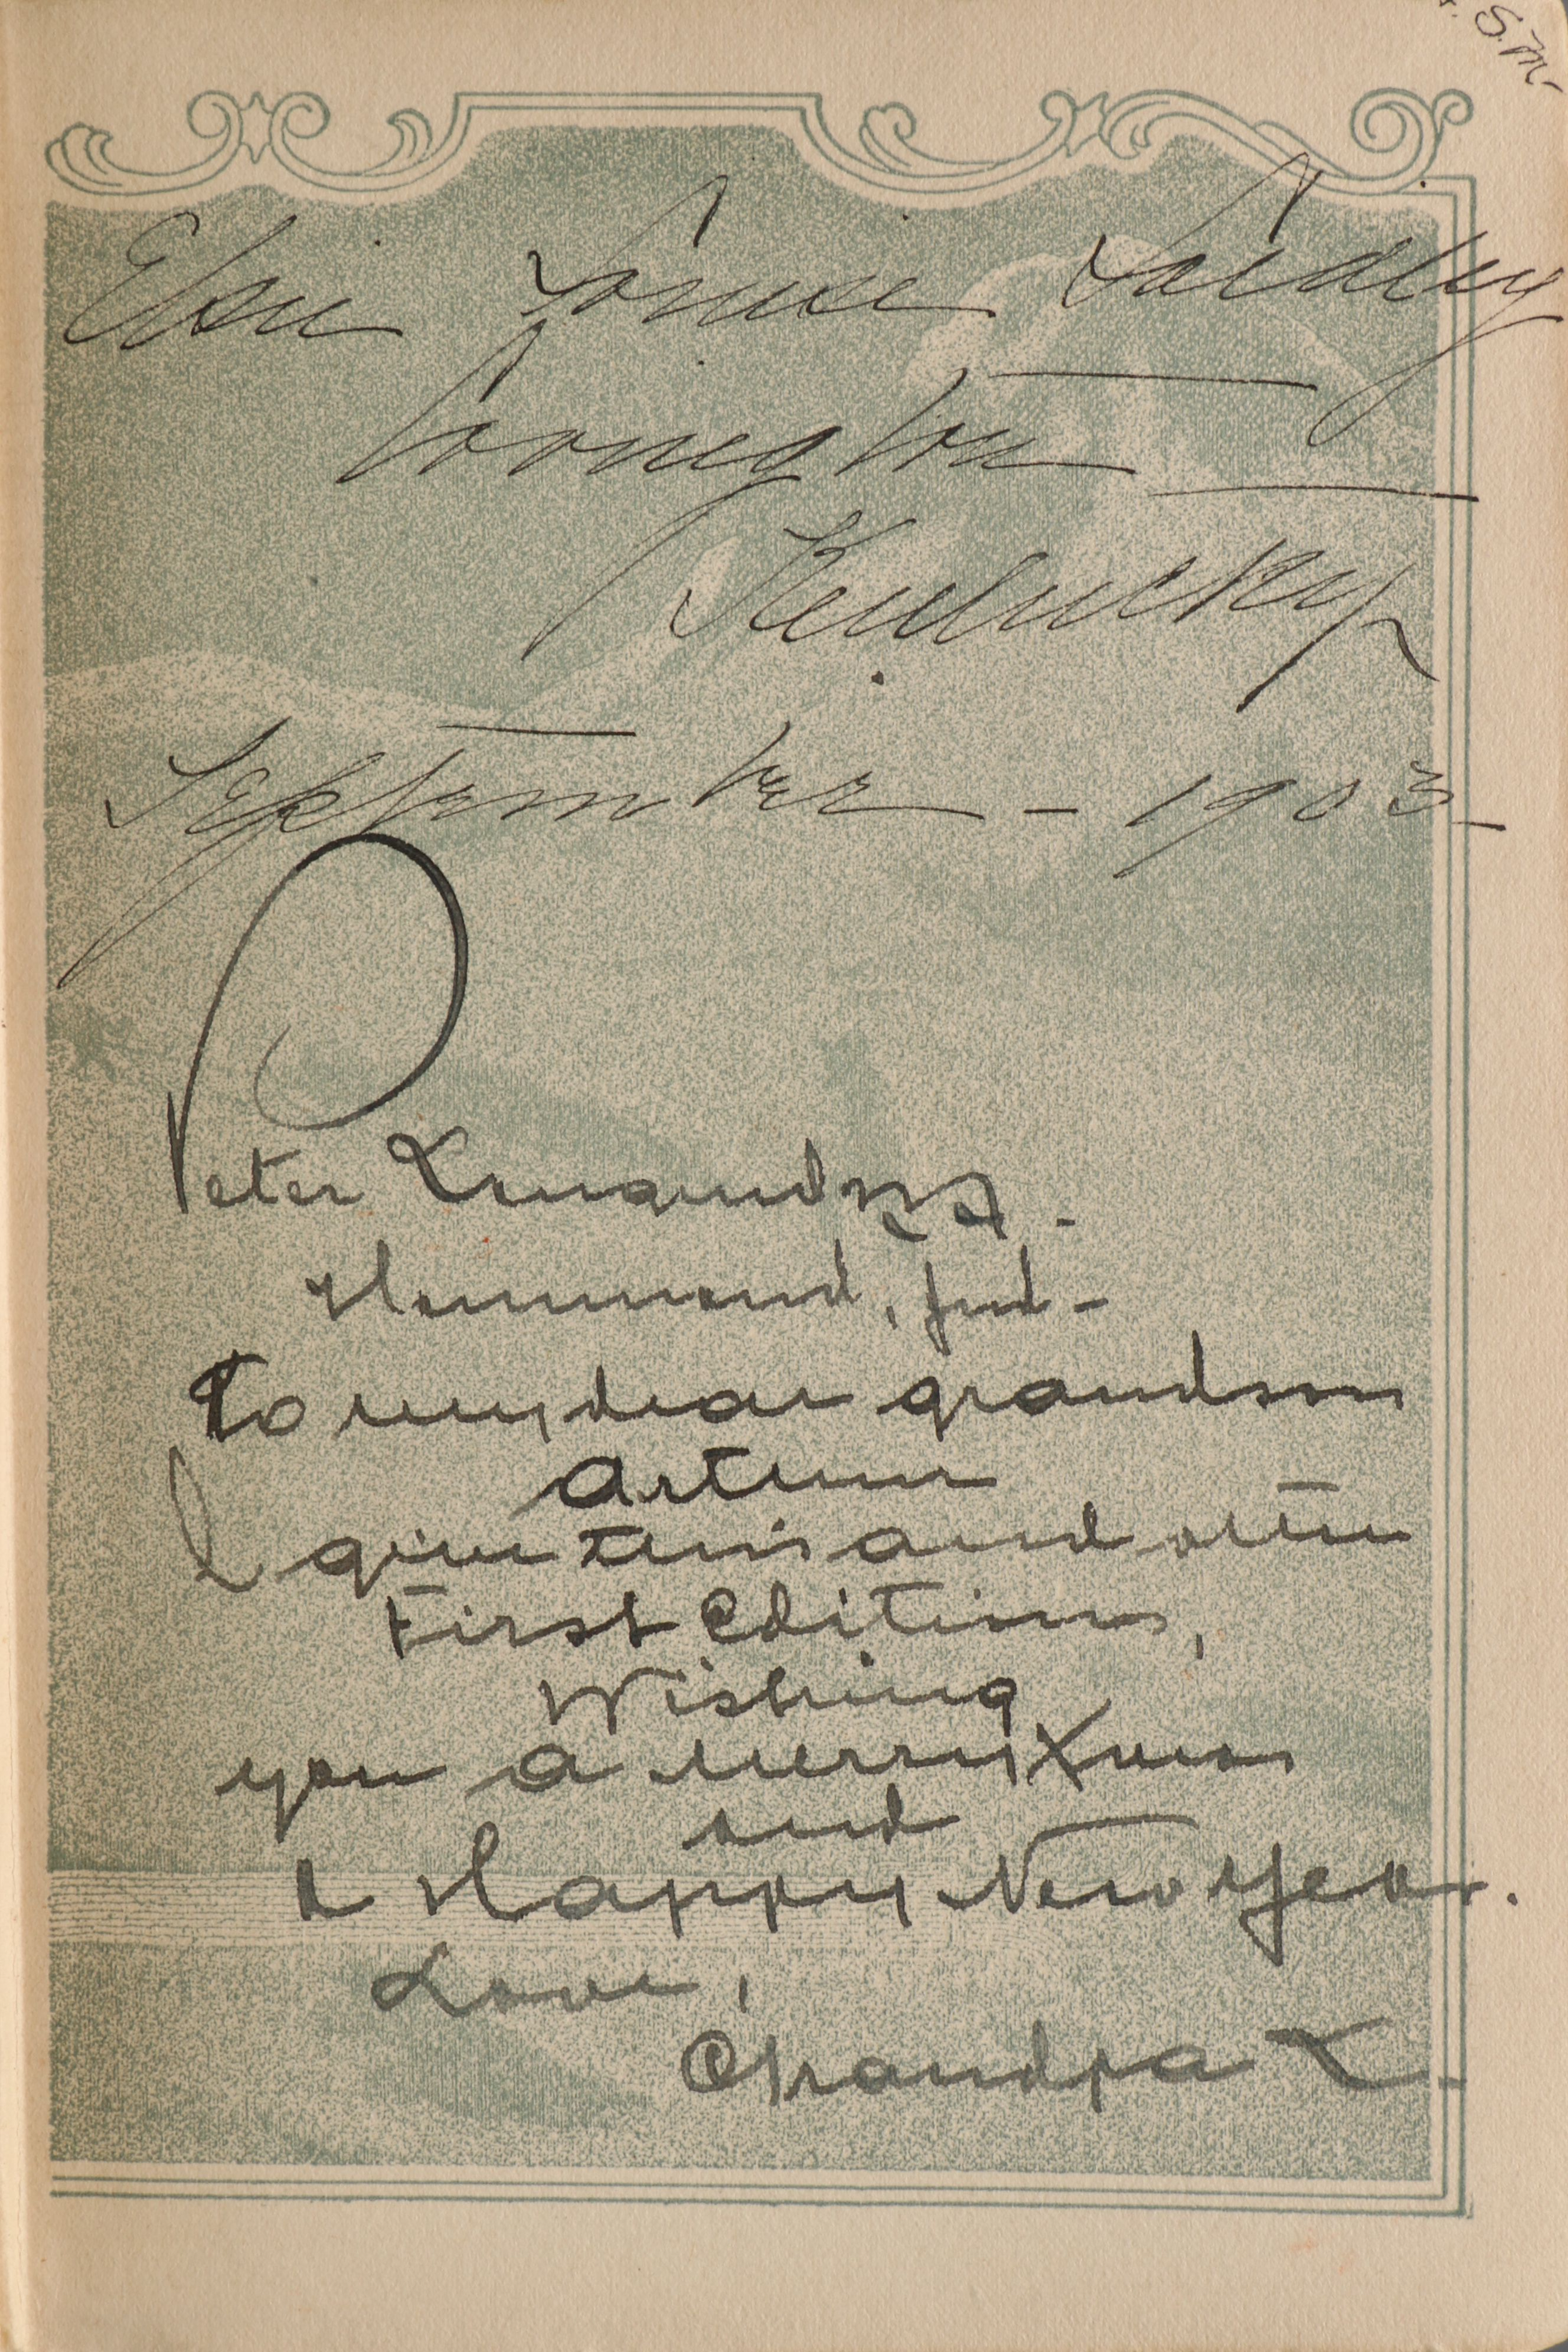 S.M.
Elsie Louise
Covington
Kentucky
September - 1903 -
Peter
Hammond, Ind -
To my dear grandson
Arthur
I give this and other
First Editions,
Wishing
you a Merry Xmas
and
A Happy New Year.
Love,
Grandpa L.